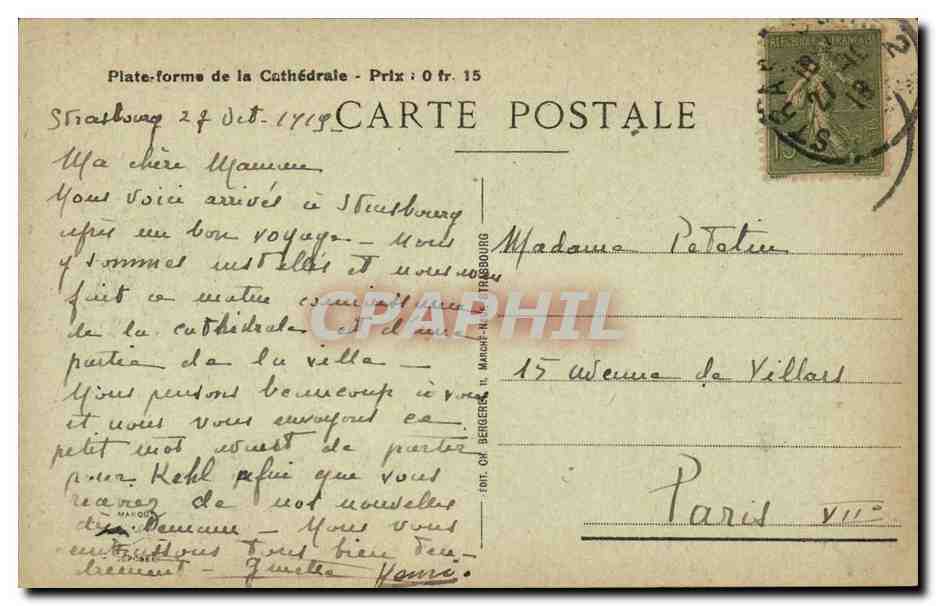 Plate-forme de la Cathédrale - Prix : 0 fr. 15
CARTE POSTALE
Strasbourg 27 Oct. 1919
Ma chère Maman
Nous voici arrivés à Strasbourg
après un bon voyage - Nous
y sommes installés et nous avons
fait ce matin connaissance
de la cathédrale et d'une
partie de la ville -
Nous pensons beaucoup à vous
et nous vous envoyons ce
petit mot avant de partir
pour Kehl afin que vous
receviez de nos nouvelles
dès Demain - Nous vous
embrassons tous bien ten-
drement - Ginette Henri.
EDIT. CH. BERGERET, 11, MARCHÉ-N. STRASBOURG
Madame Petetin
15 avenue de Villars
Paris VIIe
REPUBLIQUE FRANÇAISE
STRAS
18
21
19
2
15
MARQUE
DÉPOSÉE
CPAPHIL